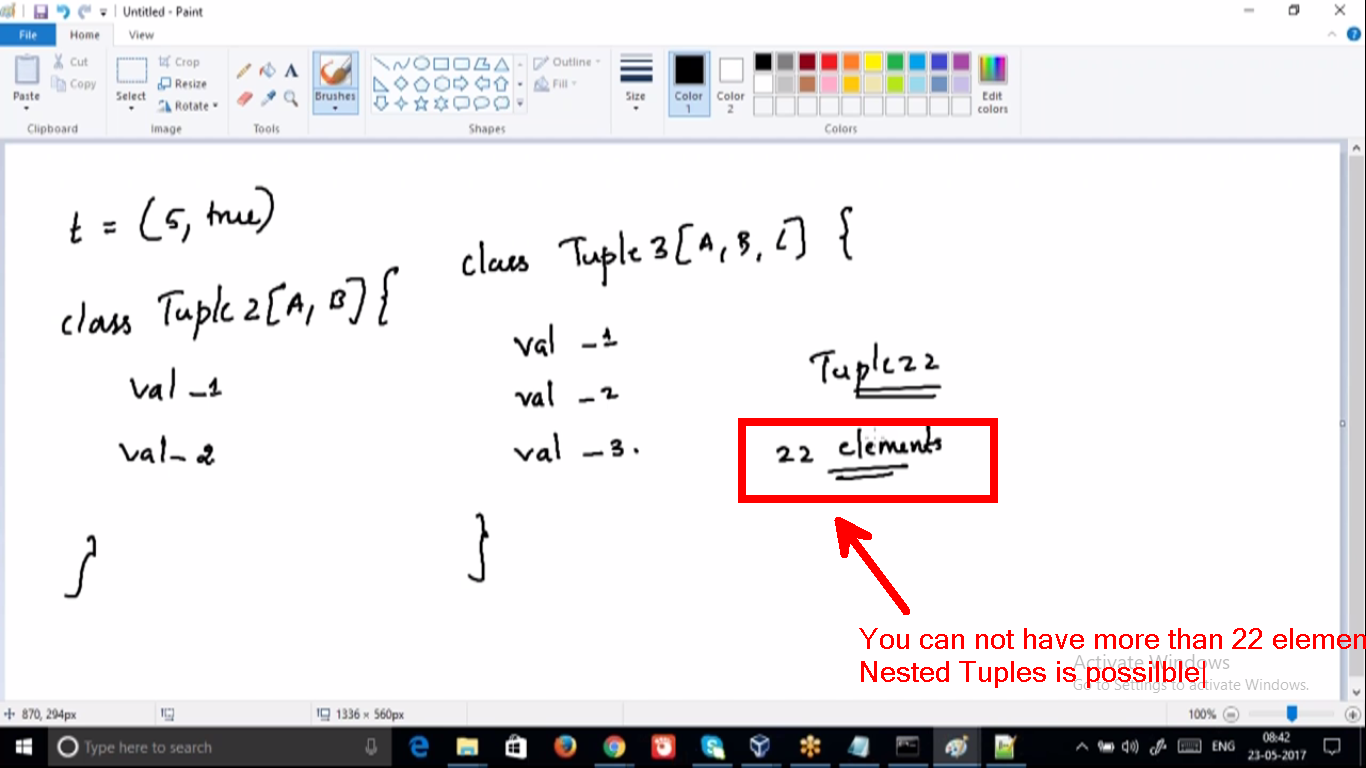 Untitled - Paint
File
Home
View
Paste
Cut
Copy
Clipboard
Select
Crop
Resize
Rotate
Image
Tools
Brushes
Outline
Fill
Shapes
Size
Color 1
Color 2
Edit colors
Colors
t = (5, true)
class Tuple2[A, B]{
val _1
val _2
}
class Tuple3[A, B, C] {
val _1
val _2
val _3.
}
Tuple22
22 elements
You can not have more than 22 elemen
Nested Tuples is possilble|
Activate Windows
Go to Settings to activate Windows.
870, 294px
1336 × 560px
100%
Type here to search
ENG
08:42
23-05-2017